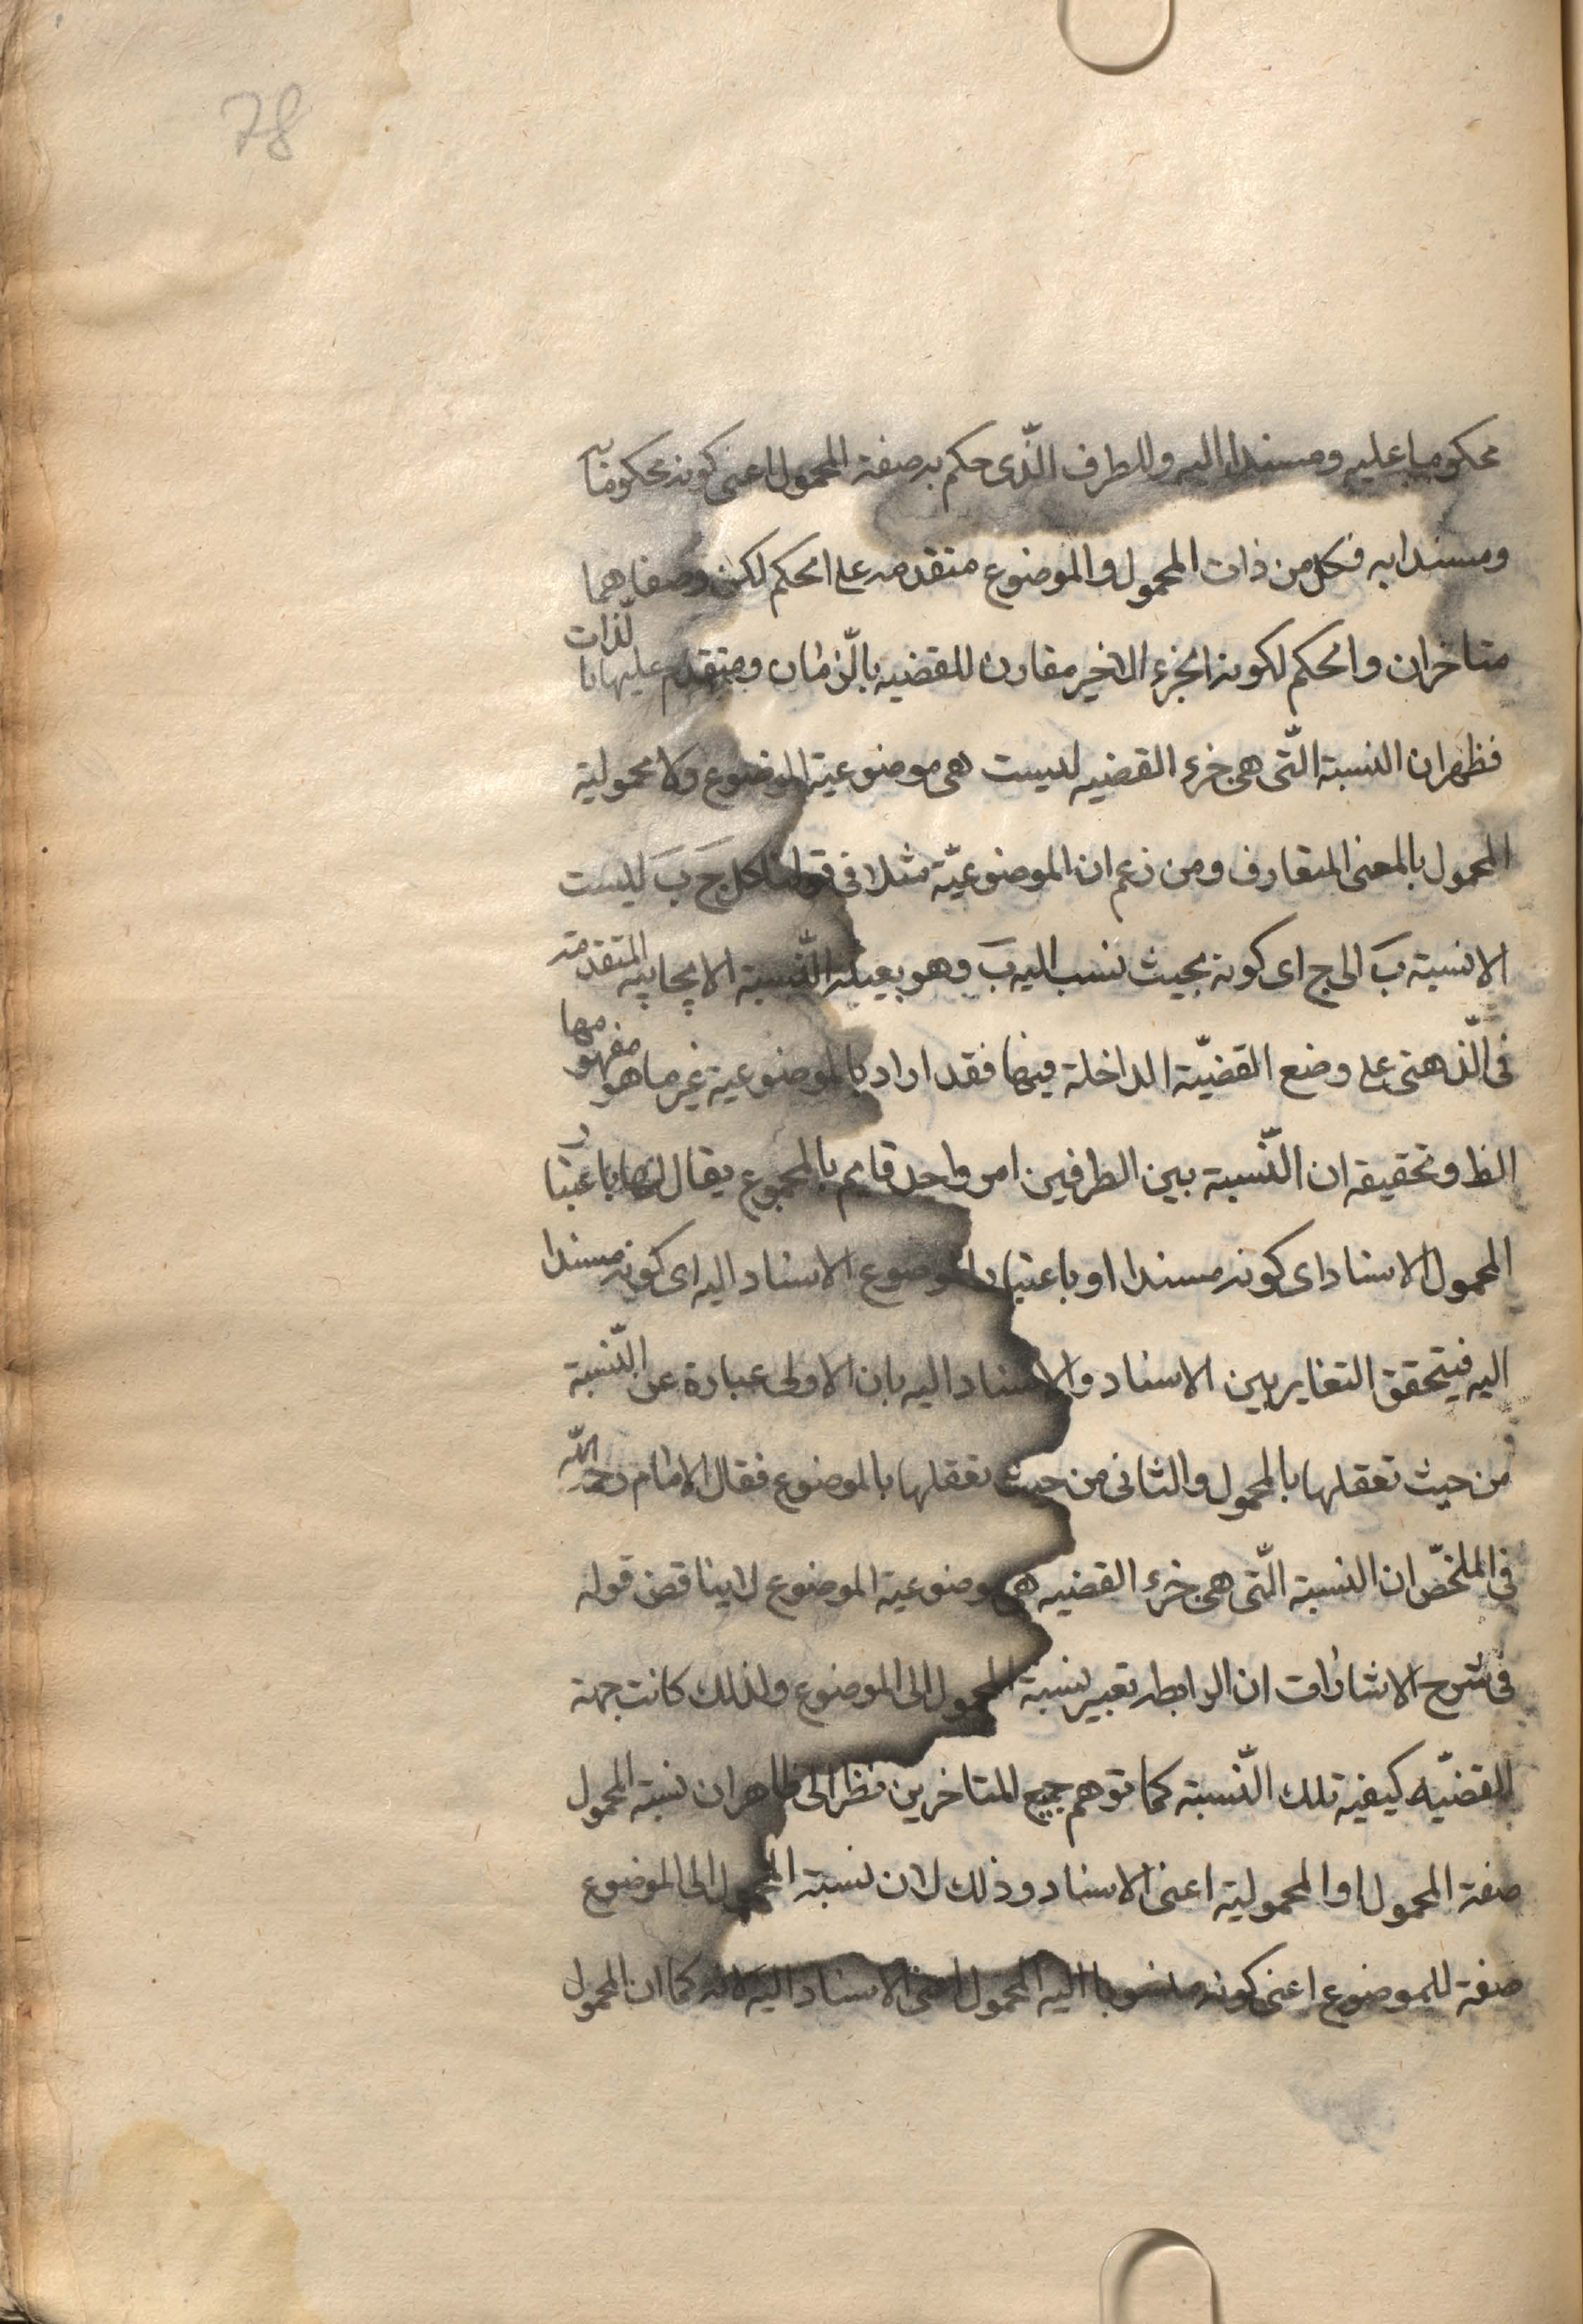 78
محكوما عليه ومسندا اليه وللطرف الذّى حكم به صفة المحمول اعنى كونه محكوما به
ومسندا به فكل من ذات المحمول والموضوع متقدمه على الحكم لكن وصفاهما
متاخران والحكم لكونه الجزء الاخير مقارن للقضيه بالزّمان ومتقدم عليها بالذّات
فظهر ان النسبة الّتى هى جزء القضيه ليست هى موضوعية الموضوع ولا محمولية
المحمول بالمعنى المتعارف ومن زعم ان الموضوعيّة مثلا فى قولنا كل جَ بَ ليست
الا نسبة بَ الى ج اى كونه بحيث نسب اليه بَ وهو بعينه النّسبة الايجابيه المتقدمة
فى الّذهنى على وضع القضيّة الداخلة فيها فقد اراد بالموضوعية غير ما هو مفهومها
الظ وتحقيقه ان النّسبة بين الطرفين امر واحد قايم بالمجموع يقال لها باعتبار
المحمول الاسناد اى كونه مسندا او باعتبار الموضوع الاسناد اليه اى كونه مسندا
اليه فيتحقق التغاير بين الاسناد والاسناد اليه بان الاولى عبارة عن النّسبة
من حيث تعقلها بالمحمول والثانى من حيث تعقلها بالموضوع فقال الامام رحمه اللّه
فى الملخّص ان النسبة الّتى هى جزء القضيه هى موضوعية الموضوع لا يناقض قوله
فى شرح الاشارات ان الرابطه تعبير لنسبة المحمول الى الموضوع ولذلك كانت جهة
القضيّه كيفية تلك النّسبة كما توهم جميع المتاخرين نظرا الى ظاهر ان نسبة المحمول
صفة المحمول او المحمولية اعنى الاسناد وذلك لان نسبة المحمول الى الموضوع
صفة للموضوع اعنى كونه منسوبا اليه المحمول اعنى الاسناد اليه لانه كما ان المحمول